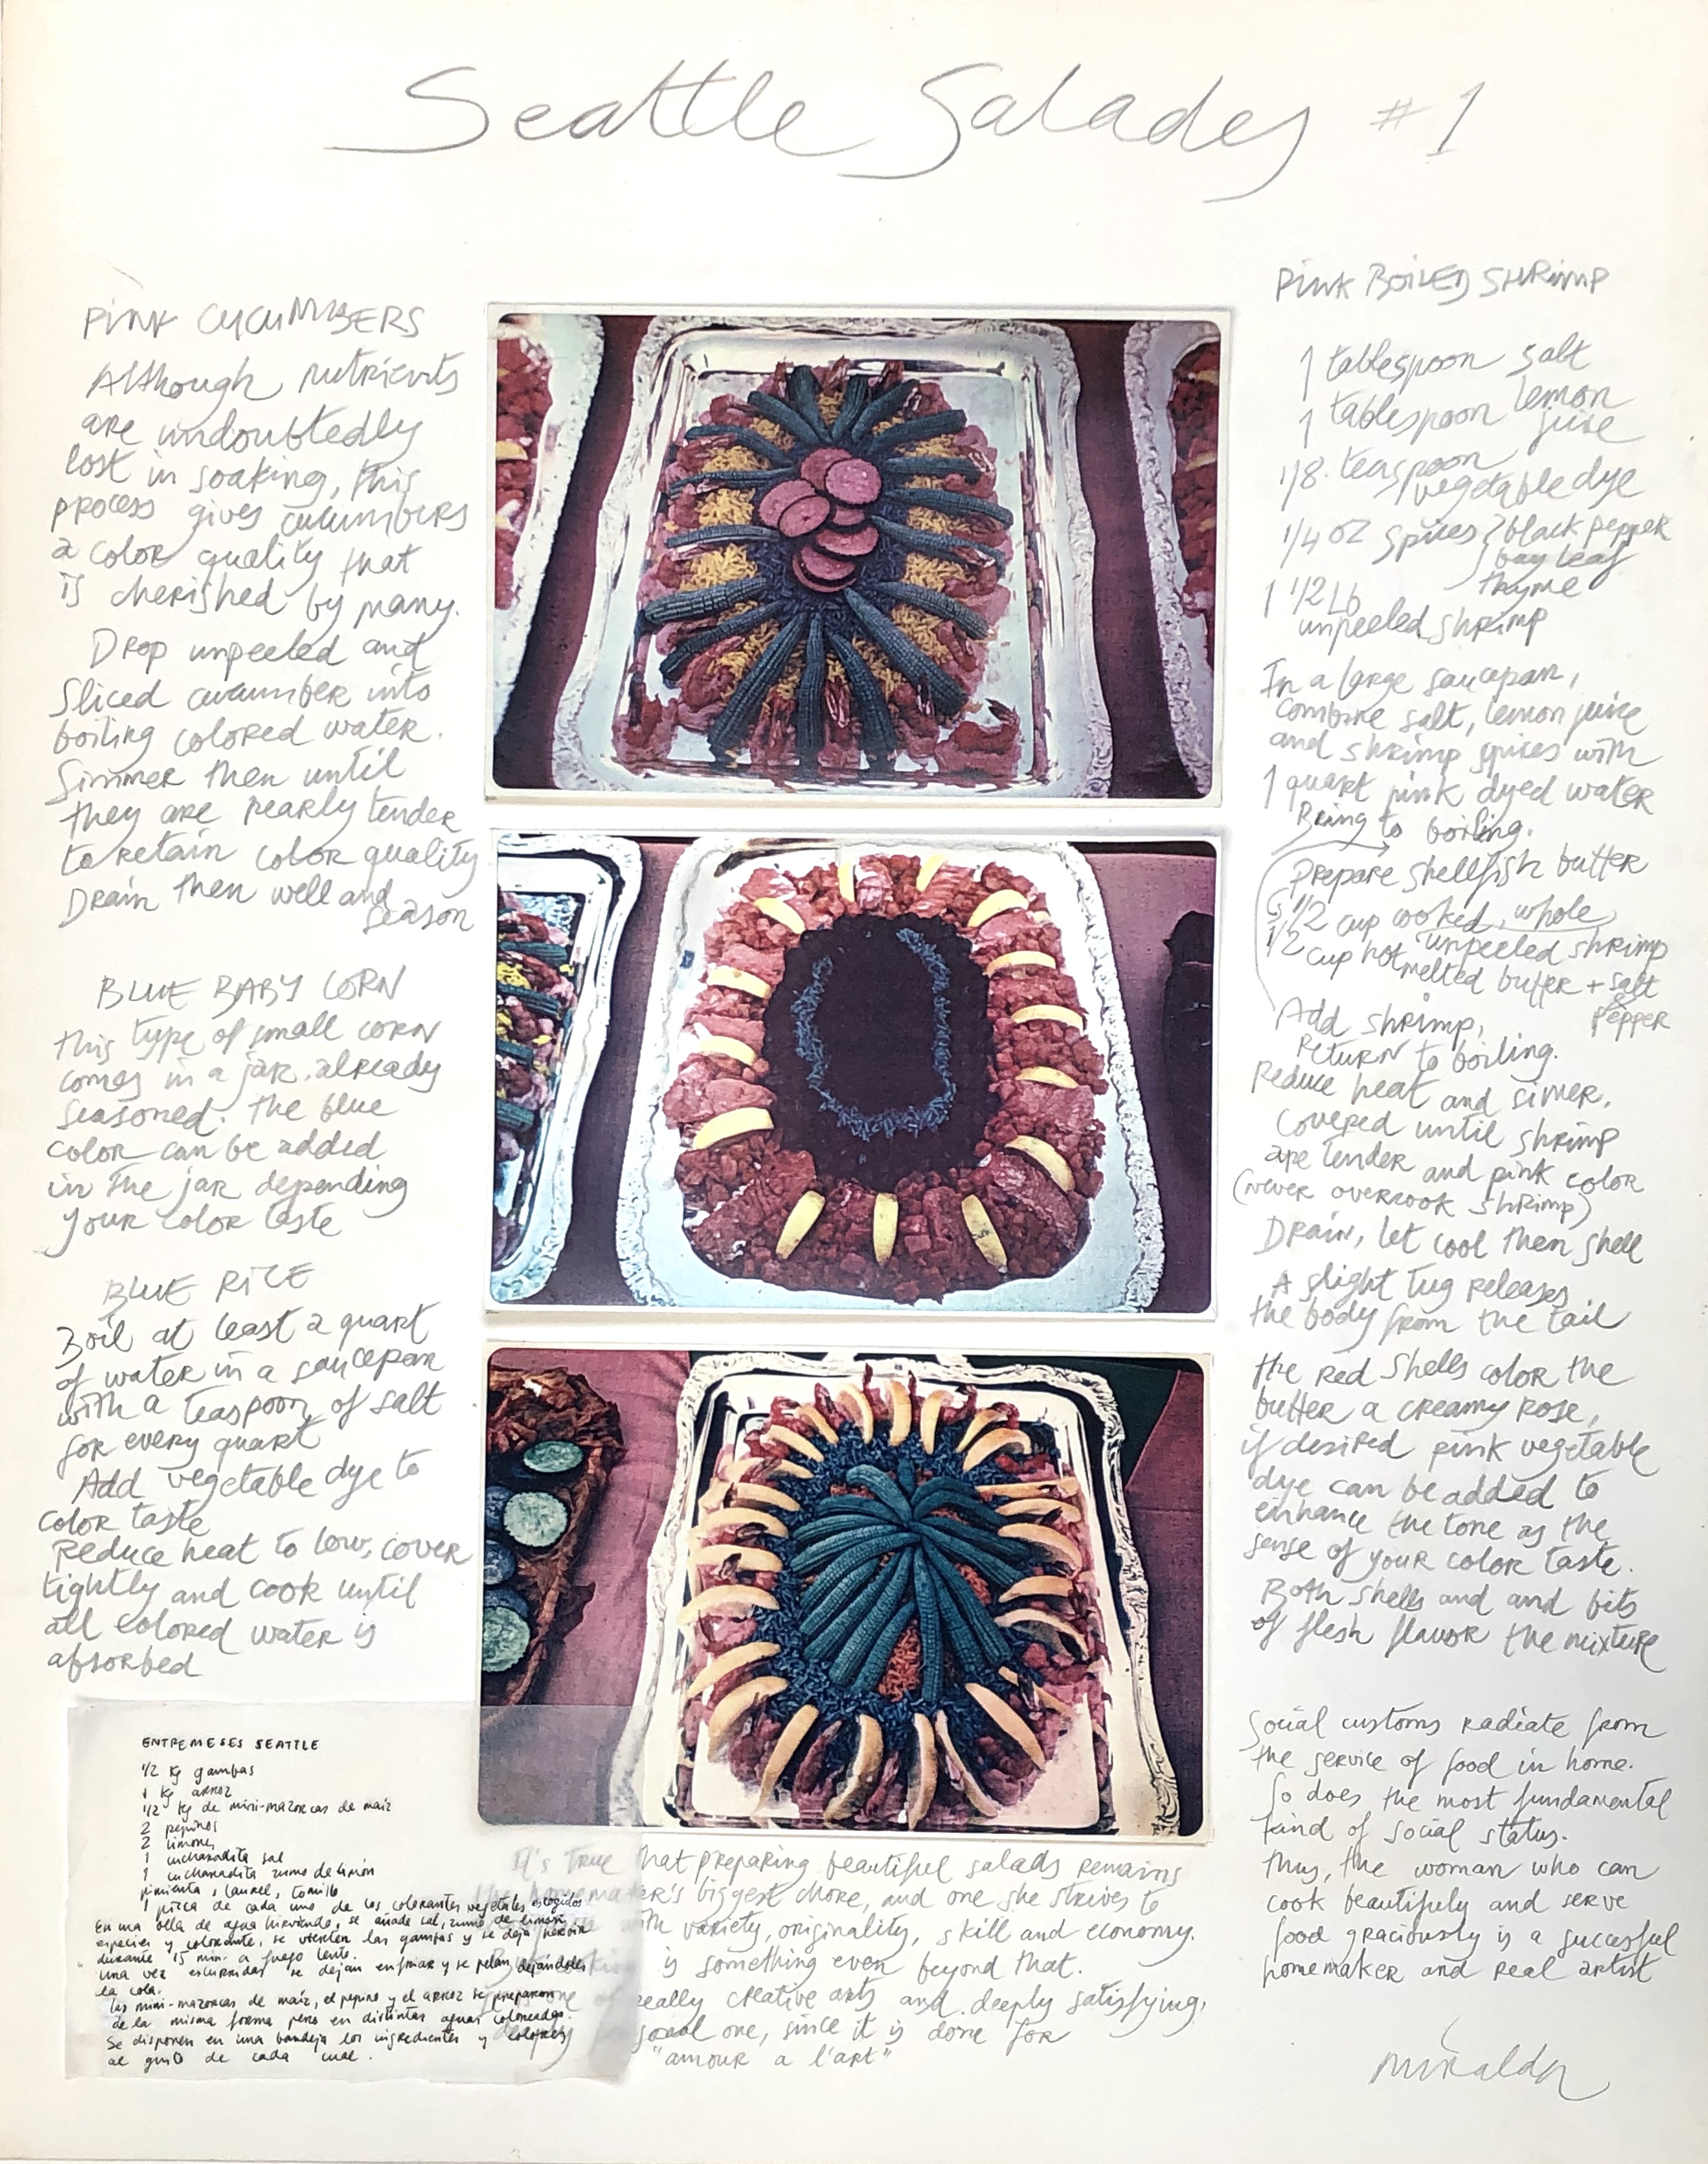 Seattle Salades #1
PINK CUCUMBERS
Although nutrients
are undoubtedly
lost in soaking, this
process gives cucumbers
a color quality that
is cherished by many.
Drop unpeeled and
Sliced cucumber into
boiling colored water.
Simmer then until
they are nearly tender
to retain color quality
Drain then well and
season
BLUE BABY CORN
this type of small corn
comes in a jar. already
seasoned. the blue
color can be added
in the jar depending
your color taste
BLUE RICE
Boil at least a quart
of water in a saucepan
with a teaspoon of salt
for every quart
Add vegetable dye to
color taste
Reduce heat to low, cover
tightly and cook until
all colored water is
absorbed
ENTREMESES SEATTLE
1/2 kg gambas
1 kg arroz
1/2 kg de mini-mazorcas de maiz
2 pepinos
2 limones
1 cucharadita sal
1 cucharadita zumo de limón
pimienta, laurel, tomillo
1 pizca de cada uno de los colorantes vegetales escogidos
En una olla de agua hirviendo, se añade sal, zumo de limón
especies y colorante, se vierten las gambas y se deja hervir
durante 15 min. a fuego lento.
una vez escurridas se dejan enfriar y se pelan dejándoles
la cola.
las mini-mazorcas de maiz, el pepino y el arroz se preparan
de la misma forma pero en distintas aguas coloreadas.
Se disponen en una bandeja los ingredientes y colores
al gusto de cada cual.
It's true that preparing beautiful salads remains
the homemaker's biggest chore, and one she strives to
with variety, originality, skill and economy.
is something even beyond that.
one of really creative arts and deeply satisfying,
social one, since it is done for
"amour a l'art"
PINK BOILED SHRIMP
1 tablespoon salt
1 tablespoon lemon
juice
1/8. teaspoon
vegetable dye
1/4 oz spices black pepper
bay leaf
thyme
1 1/2 Lb
unpeeled shrimp
In a large saucepan,
combine salt, lemon juice
and shrimp spices with
1 quart pink dyed water
Bring to boiling.
Prepare shellfish butter
1/2 cup cooked, whole,
unpeeled shrimp
1/2 cup hot melted butter + salt
& pepper
Add shrimp,
return to boiling.
Reduce heat and simer.
Covered until shrimp
are tender and pink color
(never overcook shrimp)
Drain, let cool then shell
A slight tug releases
the body from the tail
the red shells color the
butter a creamy rose,
if desired pink vegetable
dye can be added to
enhance the tone as the
sense of your color taste.
Both shells and and bits
of flesh flavor the mixture
Social customs radiate from
the service of food in home.
So does the most fundamental
kind of social status.
thus, the woman who can
cook beautifuly and serve
food graciously is a succesful
homemaker and real artist
miralda